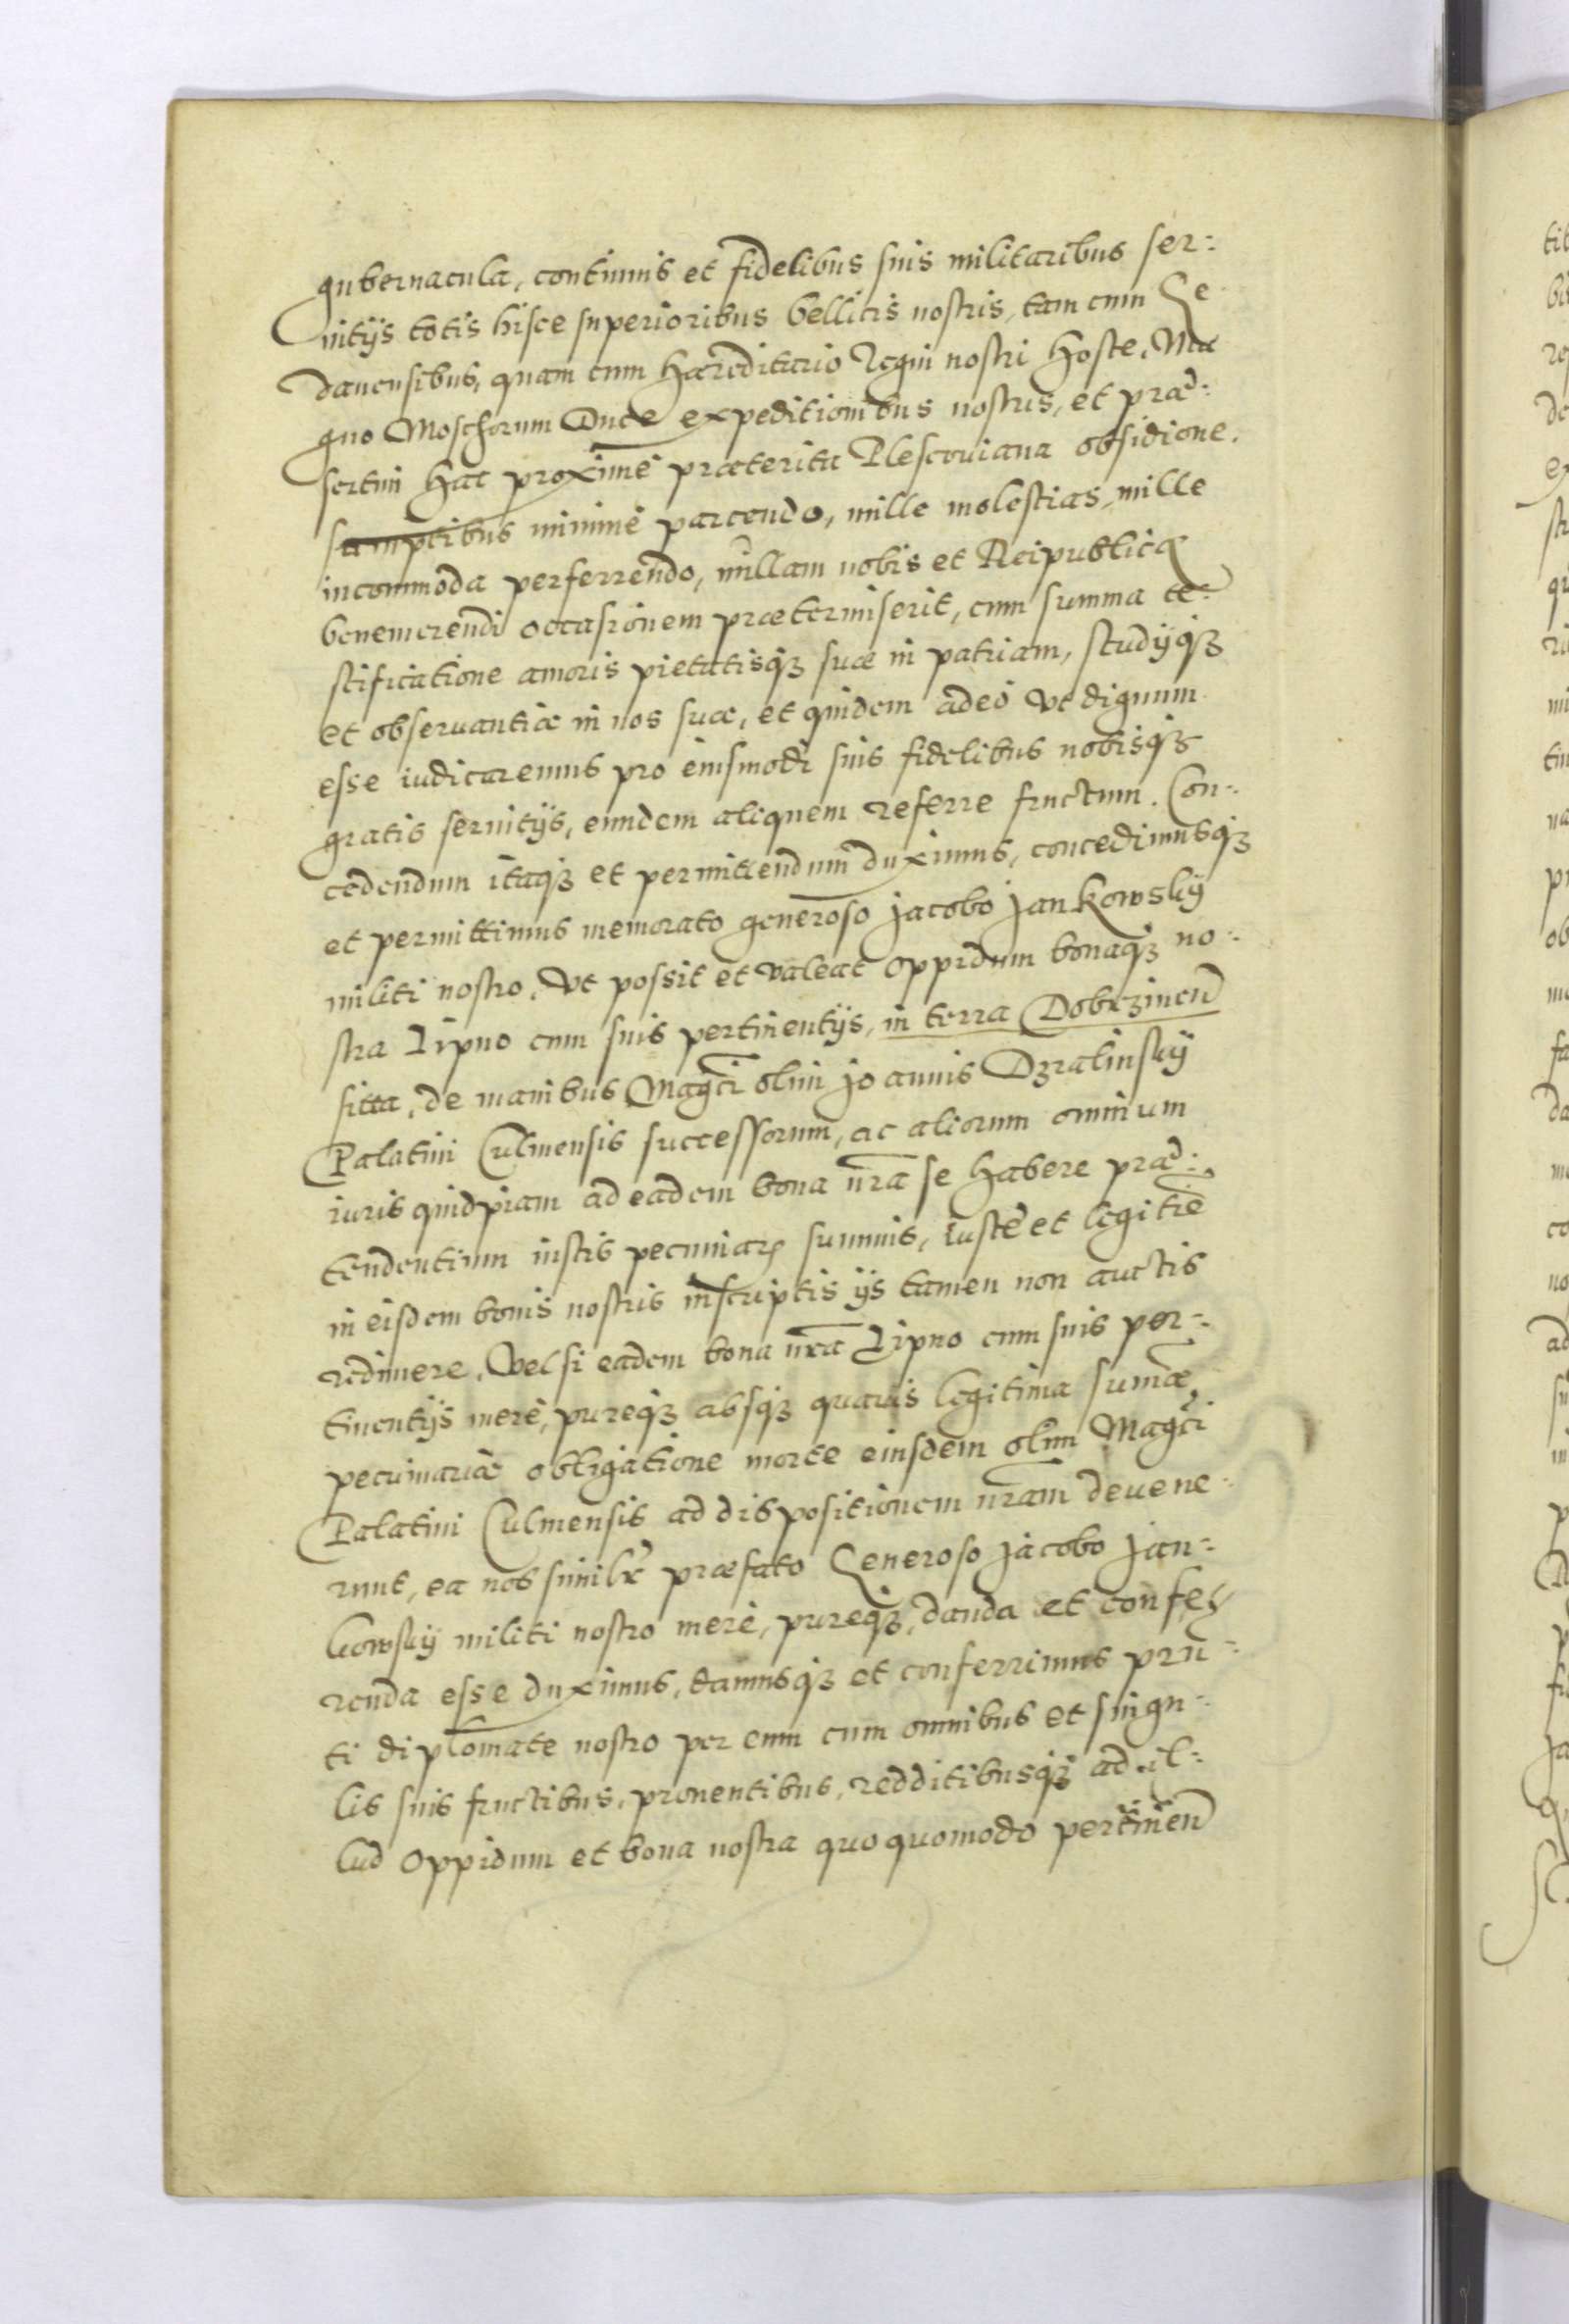 gubernacula, continuis et fidelibus suis militaribus ser-
uitijs totis hisce superioribus bellicis nostris, tam cum Ge
danensibus, quam cum hæreditario Regni nostri hoste, Ma
gno Moschorum Duce expeditionibus nostris, et præ-
sertim hac proximè præterita Plescouiana obsidione,
sumptibus minimè parcendo, mille molestias, mille
incommoda perferrendo, nullam nobis et Reipublicæ
benemerendi occasionem prætermiserit, cum summa te-
stificatione amoris pietatisq3 suæ in patriam, studijq3
et obseruantiæ in nos suæ, et quidem adeò vt dignum
esse iudicaremus pro eiusmodi suis fidelibus nobisq3
gratis seruitijs, eundem aliquem referre fructum. Con-
cedendum itaq3 et permittendum duximus, concedimusq3
et permittimus memorato generoso Jacobo Jankowsky
militi nostro, vt possit et valeat oppidum bonaq3 no-
stra Lipno cum suis pertinentijs, in terra Dobrzinen̄
sitta, de manibus Mag̃ci olim Joannis Dzialinsky
Palatini Culmensis successorum, ac aliorum omnium
iuris quidpiam ad eadem bona nr̃a se habere præ-
tendentium iustis pecuniar̃ summis, iustè et legitiẽ
in eisdem bonis nostris inscriptis ijs tamen non auctis
redimere. Vel si eadem bona nr̃a Lipno cum suis per-
tinentijs merè, pureq3 absq3 quauis legitima sum̃æ
pecuniariæ obligatione morte eiusdem olim Mag̃ci
Palatini Culmensis ad dispositionem nr̃am deuene-
runt, ea nos similr̃ præfato Generoso Jacobo Jan-
kowsky militi nostro merè, pureq3, danda et confe-
renda esse duximus, damusq3 et conferrimus præn̄-
ti diplomate nostro per eum cum omnibus et singu-
lis suis fructibus, prouentibus, redditibusq3 ad il-
lud oppidum et bona nostra quoquomodo pertinen̄